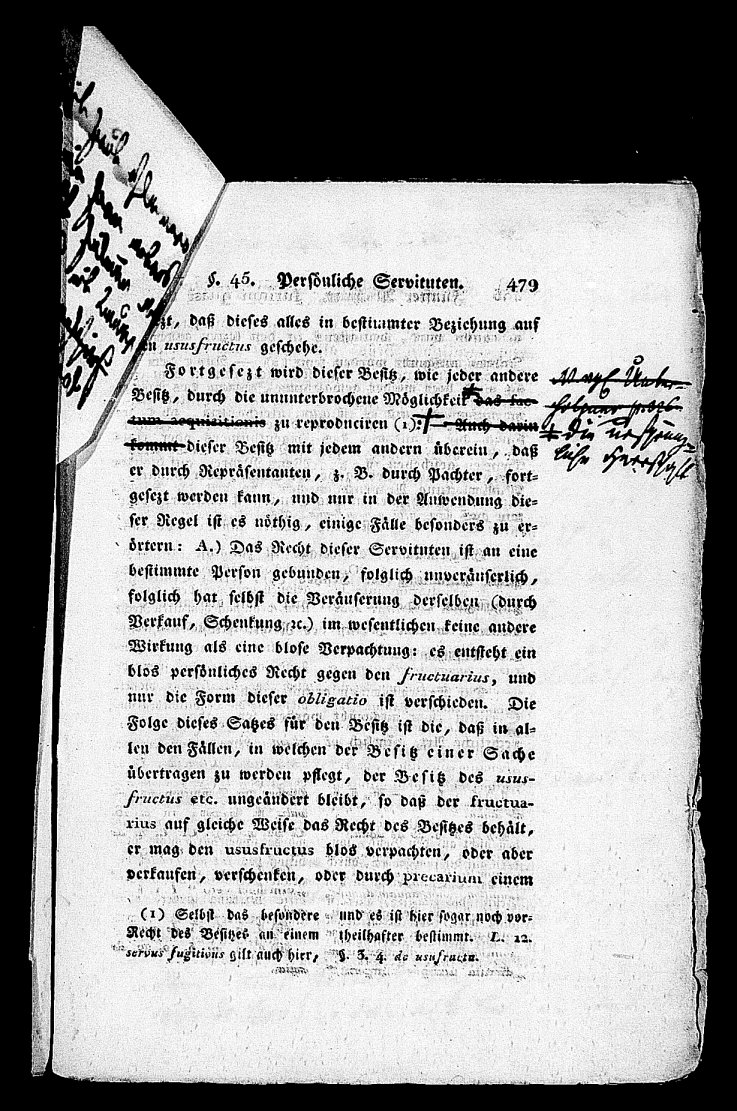 §. 45. Persönliche Servituten. 479
daß dieses alles in bestimmter Beziehung auf
ususfructus geschehe.
Fortgesezt wird dieser Besitz, wie jeder andere
Besitz, durch die ununterbrochene Möglichkeit das fac-
tum acquisitionis zu reproduciren (1): Auch darin
kommt dieser Besitz mit jedem andern überein, daß
er durch Repräsentanten, z. B. durch Pachter, fort-
gesezt werden kann, und nur in der Anwendung die-
ser Regel ist es nöthig, einige Fälle besonders zu er-
örtern: A.) Das Recht dieser Servituten ist an eine
bestimmte Person gebunden, folglich unveräuserlich,
folglich hat selbst die Veräuserung derselben (durch
Verkauf, Schenkung ꝛc.) im wesentlichen keine andere
Wirkung als eine blose Verpachtung: es entsteht ein
blos persönliches Recht gegen den fructuarius, und
nur die Form dieser obligatio ist verschieden. Die
Folge dieses Satzes für den Besitz ist die, daß in al-
len den Fällen, in welchen der Besitz einer Sache
übertragen zu werden pflegt, der Besitz des usus-
fructus etc. ungeändert bleibt, so daß der fructua-
rius auf gleiche Weise das Recht des Besitzes behält,
er mag den ususfructus blos verpachten, oder aber
verkaufen, verschenken, oder durch precarium einem
(1) Selbst das besondere
Recht des Besitzes an einem
servus fugitivus gilt auch hier,
und es ist hier sogar noch vor-
theilhafter bestimmt. L. 12.
§. 3. 4. de usufructu.
die ursprüng-
liche Herrschaft